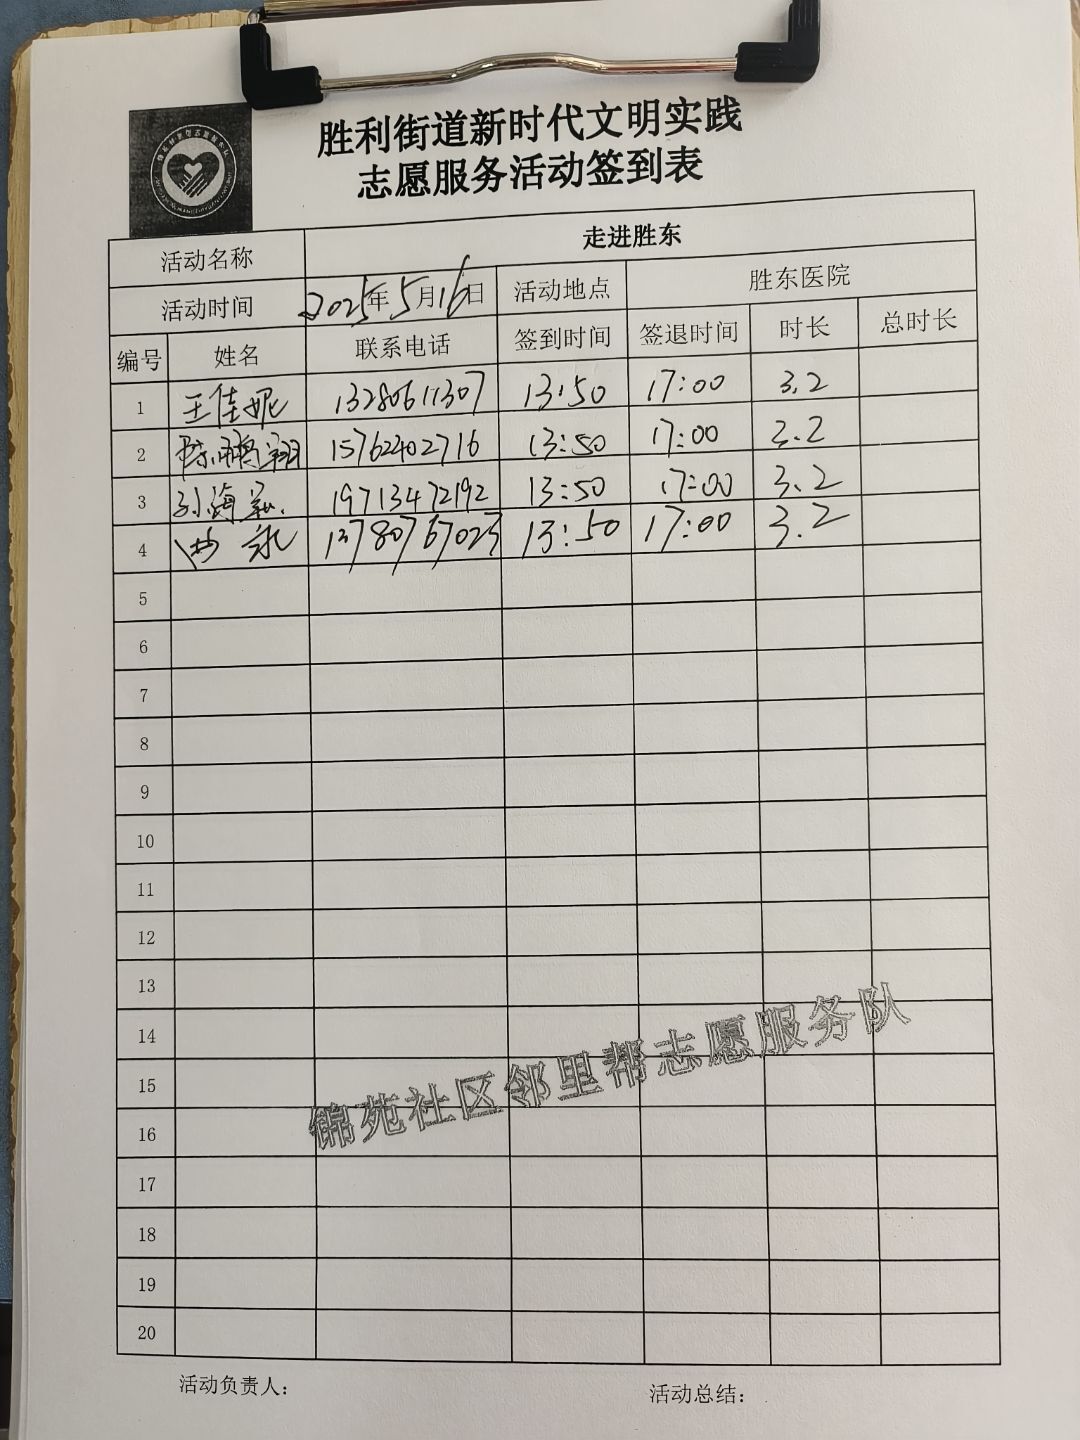 胜利街道新时代文明实践
志愿服务活动签到表
活动名称 走进胜东
活动时间 2025年5月16日 活动地点 胜东医院
编号 姓名 联系电话 签到时间 签退时间 时长 总时长
1 王佳妮 13280611307 13:50 17:00 3.2
2 陈鹏翔 15762402716 13:50 17:00 3.2
3 孙海 19713472192 13:50 17:00 3.2
4 13780767023 13:50 17:00 3.2
5
6
7
8
9
10
11
12
13
14
15
16
17
18
19
20
锦苑社区邻里帮志愿服务队
活动负责人: 活动总结: